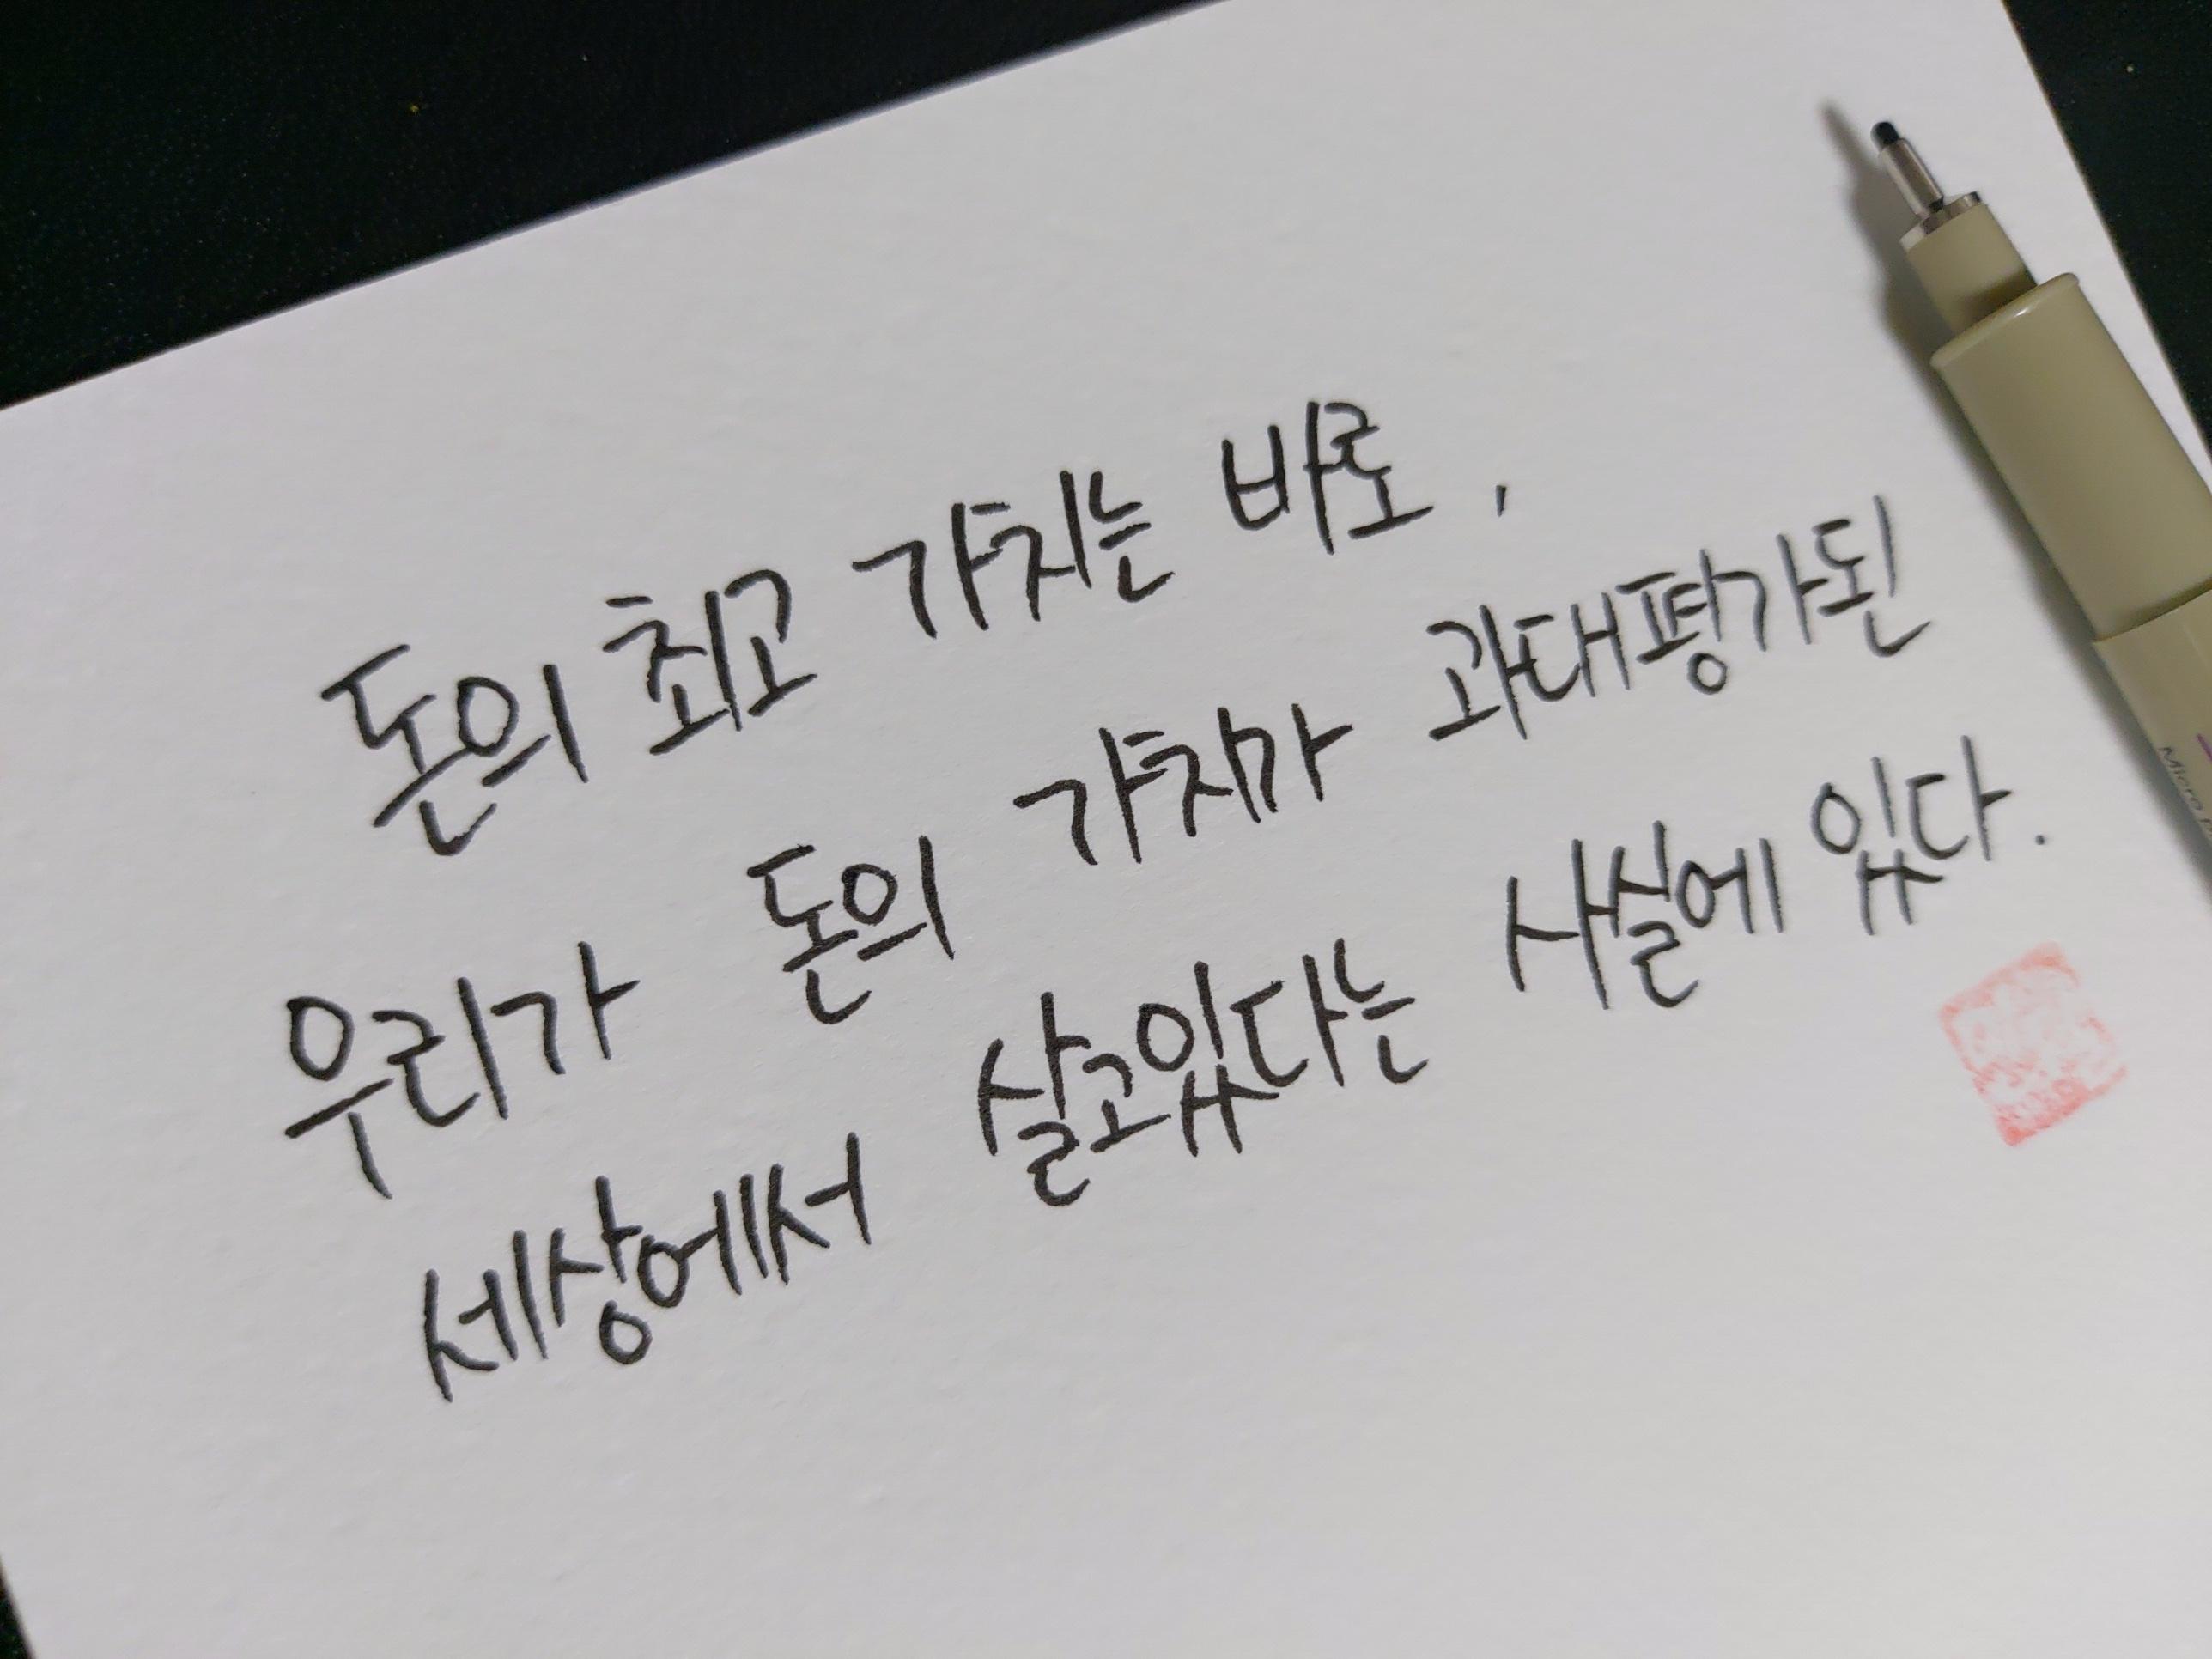 돈의 최고 가치는 바로,
우리가 돈의 가치가 과대평가된
세상에서 살고있다는 사실에 있다.
Micro